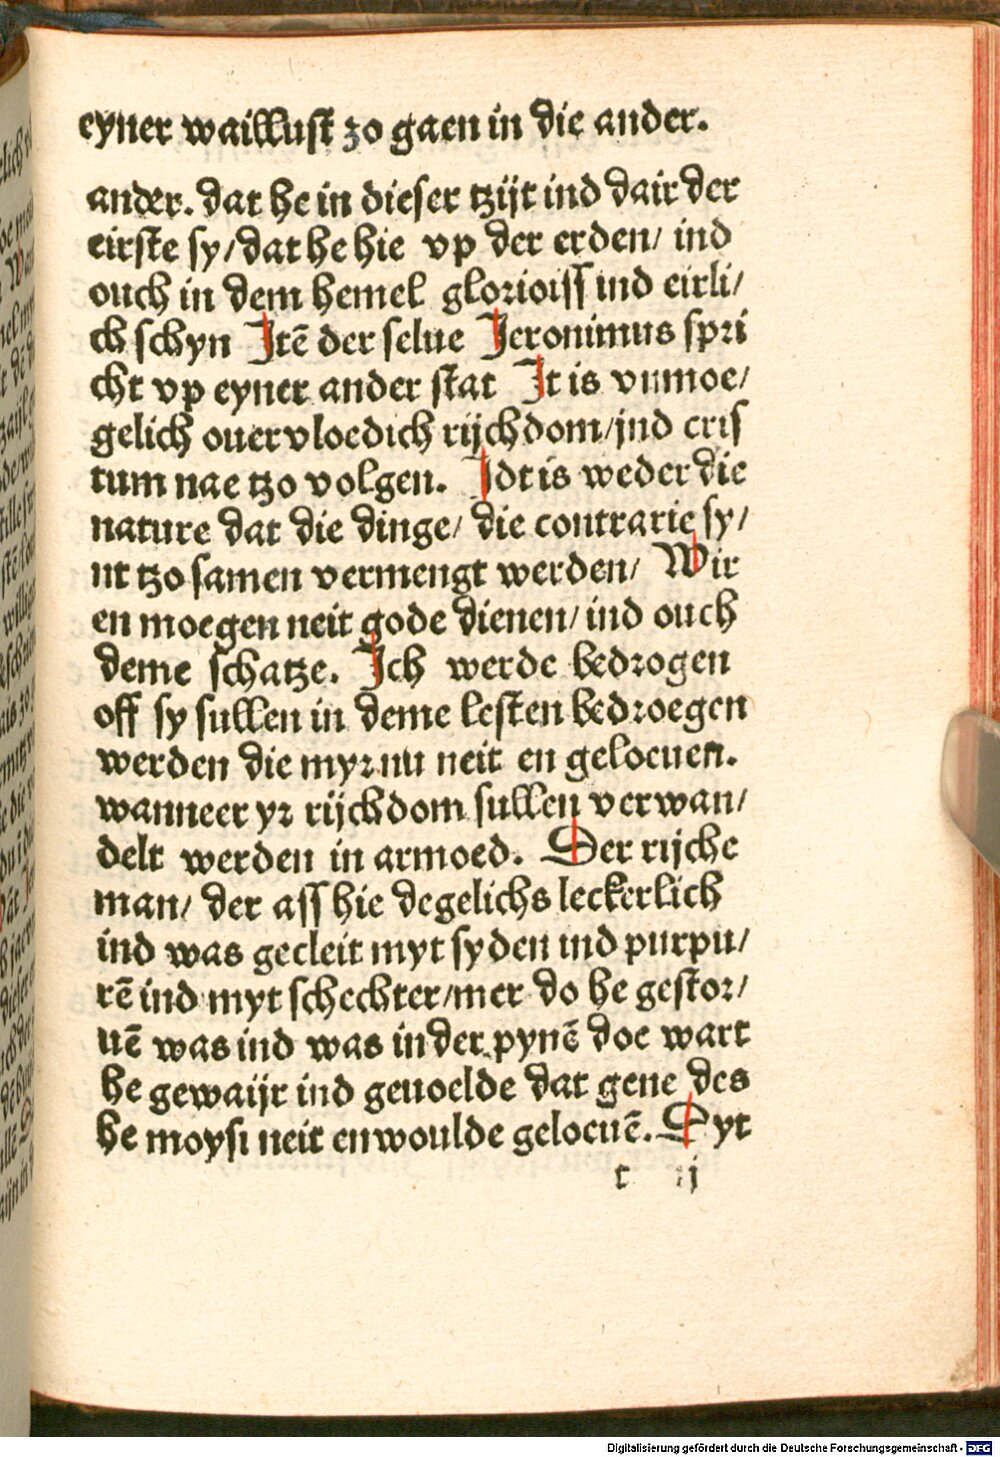 eyner waillust zo gaen in die ander.
ander. dat he in dieser tzijt ind dair der
eirste sy/ dat he hie vp der erden/ ind
ouch in dem hemel glorioiss ind eirli/
ch schyn Jtē der selue Jeronimus spri
cht vp eyner ander stat Jt is vnmoe/
gelich ouervloedich rijchdom/ jnd cris
tum nae tzo volgen. Jdt is weder die
nature dat die dinge/ die contrarie sy/
nt tzo samen vermengt werden/ Wir
en moegen neit gode dienen/ ind ouch
deme schatze. Jch werde bedrogen
off sy sullen in deme lesten bedroegen
werden die myr nu neit en geloeuen.
wanneer yr rijchdom sullen verwan/
delt werden in armoed. Der rijche
man/ der ass hie degelichs leckerlich
ind was gecleit myt syden ind purpu/
rē ind myt schechter/ mer do he gestor/
uē was ind was in der pynē doe wart
he gewaijr ind geuoelde dat gene des
he moysi neit enwoulde geloeuē. Syt
t ij
Digitalisierung gefördert durch die Deutsche Forschungsgemeinschaft - DFG